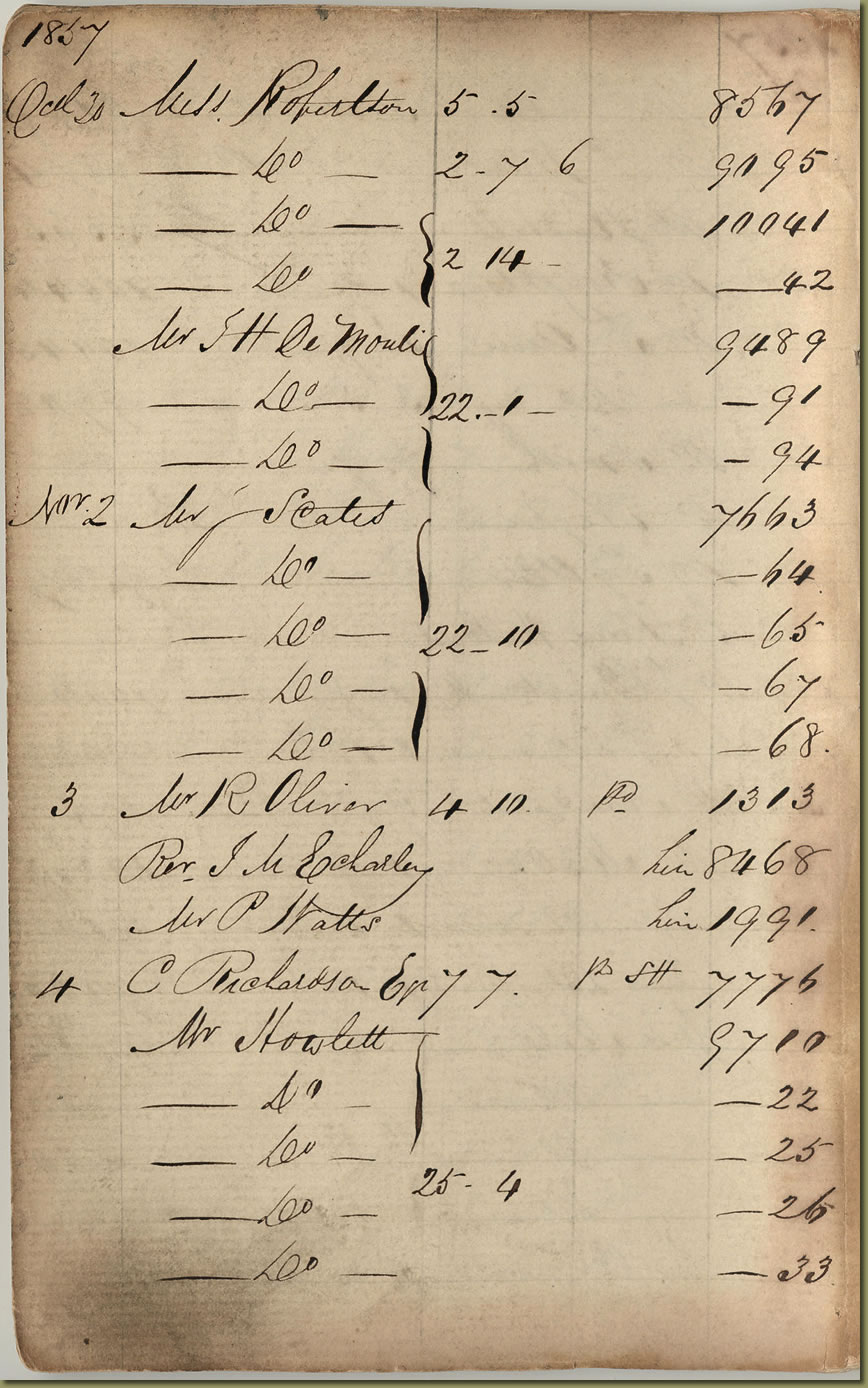 1857
Oct 20 Miss Robertson 5 . 5 8567
— Do — 2 - 7 6 9195
— Do — 10041
— Do — 2 14 - — 42
Mr J H De Moulin 9489
— Do — 22 . - 1 - — 91
— Do — - 94
Nov. 2 Mr J Scates 7663
— Do — — 64
— Do — 22 - 10 — 65
— Do — — 67
— Do — — 68.
3 Mr R Oliver 4 10. pd 1313
Rev. J M Echarley 8468
Mr P Watts 1991.
4 C Richardson Eqr 7 7. pd SH 7776
Mr Howlett 9710
— Do — — 22
— Do — — 25
— Do — 25 - 4 — 26
— Do — — 33